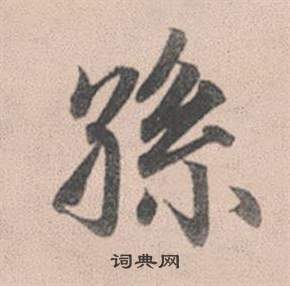 孫
词典网